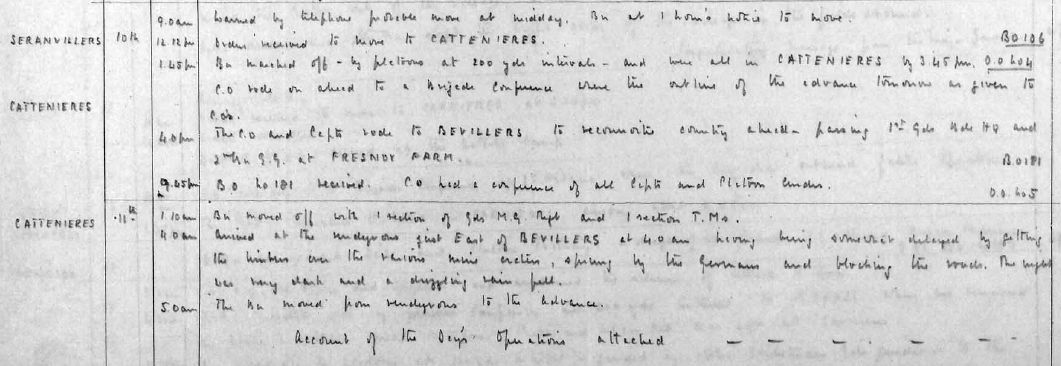 9.0am Warned by telephone probable move at midday. Bn at 1 hour's notice to move.
SERANVILLERS 10th 12.12pm Orders received to move to CATTENIERES. BO 106
1.45pm Bn marched off - by platoons at 200 yds intervals - and were all in CATTENIERES by 3.45 pm. O.O 204
CATTENIERES C.O rode on ahead to a Brigade Conference where the outline of the advance tomorrow as given to
C.Os.
4.0pm The C.O and Capts rode to BEVILLERS to reconnoitre country ahead - passing 1st Gds Bde HQ and
2nd Bn G.G. at FRESNOY FARM. B.O 181
9.25pm B.O No 181 received. CO had a conference of all Capts and Platoon Cmdrs. O.O. 205
CATTENIERES 11th 1.10am Bn moved off with 1 section of Gds M.G. Regt and 1 section T.Ms.
4.0am Arrived at the rendezvous just East of BEVILLERS at 4.0 am having being somewhat delayed by getting
the limbers over the various mine craters, sprung by the Germans and blocking the roads. The night
was very dark and a drizzling rain fell.
5.0am The Bn moved from rendezvous to the advance.
Account of the Day's Operations attached - - - - - -